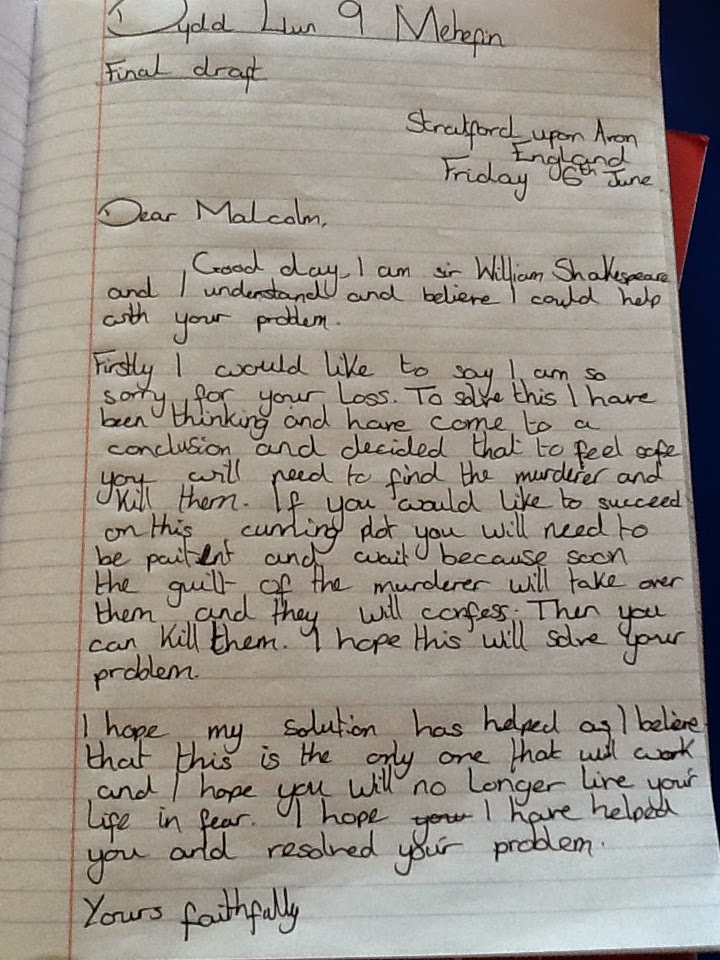 Dydd Llun 9 Mehefin
Final draft
Stratford upon Avon
England
Friday 6th June
Dear Malcolm,
Good day, I am sir William Shakespeare
and I understand and believe I could help
with your problem.
Firstly I would like to say I am so
sorry for your loss. To solve this I have
been thinking and have come to a
conclusion and decided that to feel safe
you will need to find the murderer and
kill them. If you would like to succeed
on this cunning plot you will need to
be paitent and wait because soon
the guilt of the murderer will take over
them and they will confess. Then you
can kill them. I hope this will solve your
problem.
I hope my solution has helped as I believe
that this is the only one that will work
and I hope you will no longer live your
life in fear. I hope you I have helped
you and resolved your problem.
Yours faithfully